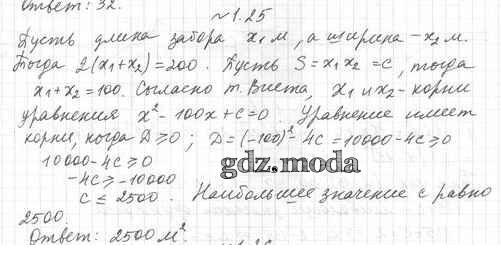 Ответ: 32.
№1.25
Пусть длина забора x₁ м, а ширина – x₂ м.
Тогда 2(x₁+x₂)=200. Пусть S=x₁x₂=c, тогда
x₁+x₂=100. Согласно т. Виета, x₁ и x₂ – корни
уравнения x²-100x+c=0. Уравнение имеет
корни, когда D≥0; D=(-100)²-4c=10000-4c≥0
10000-4c≥0
gdz.moda
-4c≥-10000
c≤2500. Наибольшее значение c равно
2500.
Ответ: 2500 м².